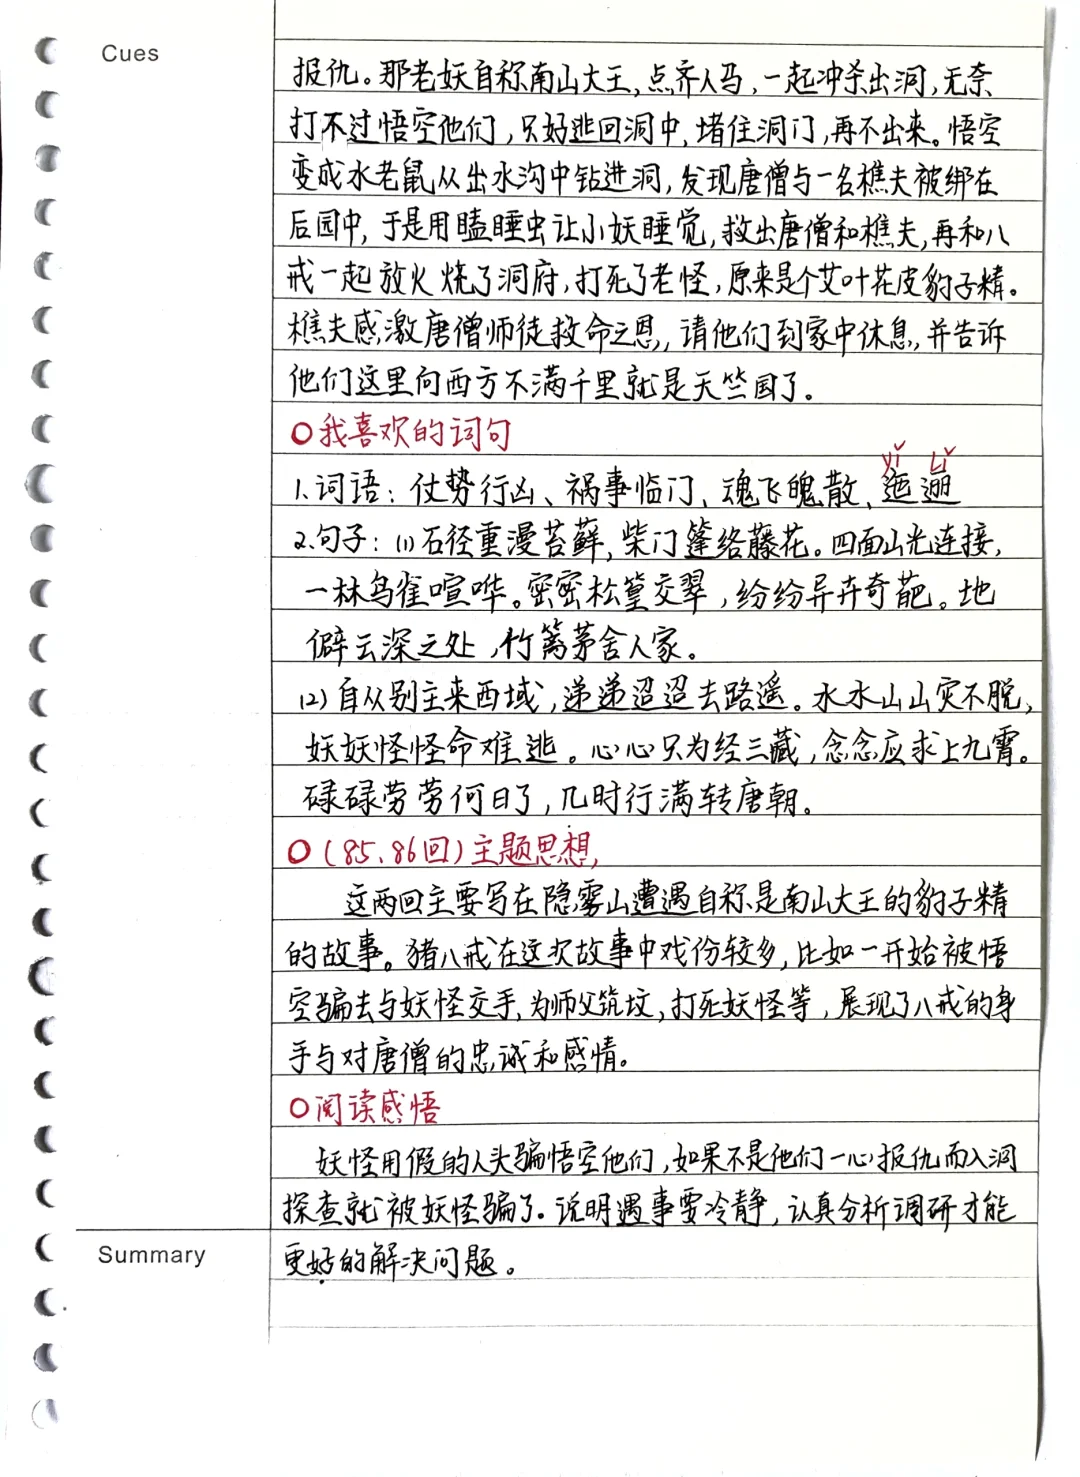 Cues
报仇。那老妖自称南山大王,点齐人马,一起冲杀出洞,无奈
打不过悟空他们,只好逃回洞中,堵住洞门,再不出来。悟空
变成水老鼠从出水沟中钻进洞,发现唐僧与一名樵夫被绑在
后园中,于是用瞌睡虫让小妖睡觉,救出唐僧和樵夫,再和八
戒一起放火烧了洞府,打死了老怪,原来是个艾叶花皮豹子精。
樵夫感激唐僧师徒救命之恩,请他们到家中休息,并告诉
他们这里向西方不满千里就是天竺国了。
○我喜欢的词句
yǐ lǐ
1.词语:仗势行凶、祸事临门、魂飞魄散、迤逦
2.句子:(1)石径重漫苔藓,柴门篷络藤花。四面山光连接,
一林鸟雀喧哗。密密松篁交翠,纷纷异卉奇葩。地
僻云深之处,竹篱茅舍人家。
(2)自从别主来西域,递递迢迢去路遥。水水山山灾不脱,
妖妖怪怪命难逃。心心只为经三藏,念念应求上九霄。
碌碌劳劳何日了,几时行满转唐朝。
○(85、86回)主题思想,
这两回主要写在隐雾山遭遇自称是南山大王的豹子精
的故事。猪八戒在这次故事中戏份较多,比如一开始被悟
空骗去与妖怪交手,为师父筑坟,打死妖怪等,展现了八戒的身
手与对唐僧的忠诚和感情。
○阅读感悟
妖怪用假的人头骗悟空他们,如果不是他们一心报仇而入洞
探查就被妖怪骗了。说明遇事要冷静,认真分析调研才能
Summary
更好的解决问题。